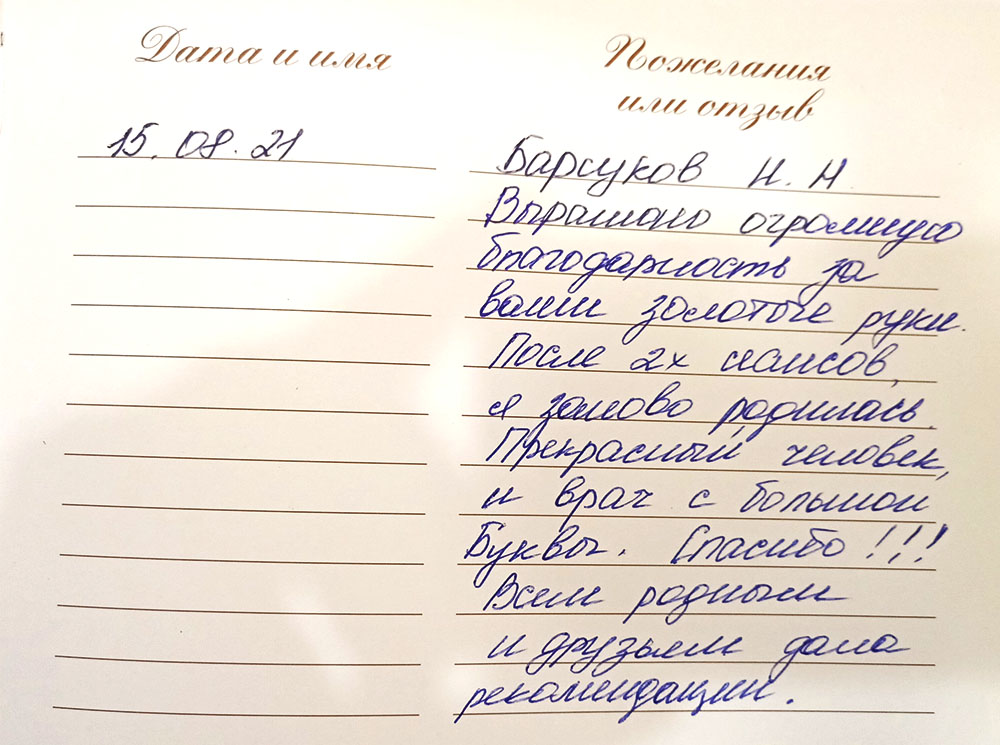 Дата и имя
Пожелания
или отзыв
15.08.21
Барсуков Н. Н.
Выражаю огромную
благодарность за
ваши золотые руки.
После 2х сеансов,
я заново родилась.
Прекрасный человек,
и врач с большой
Буквы. Спасибо!!!
Всем родным
и друзьям дала
рекомендации.